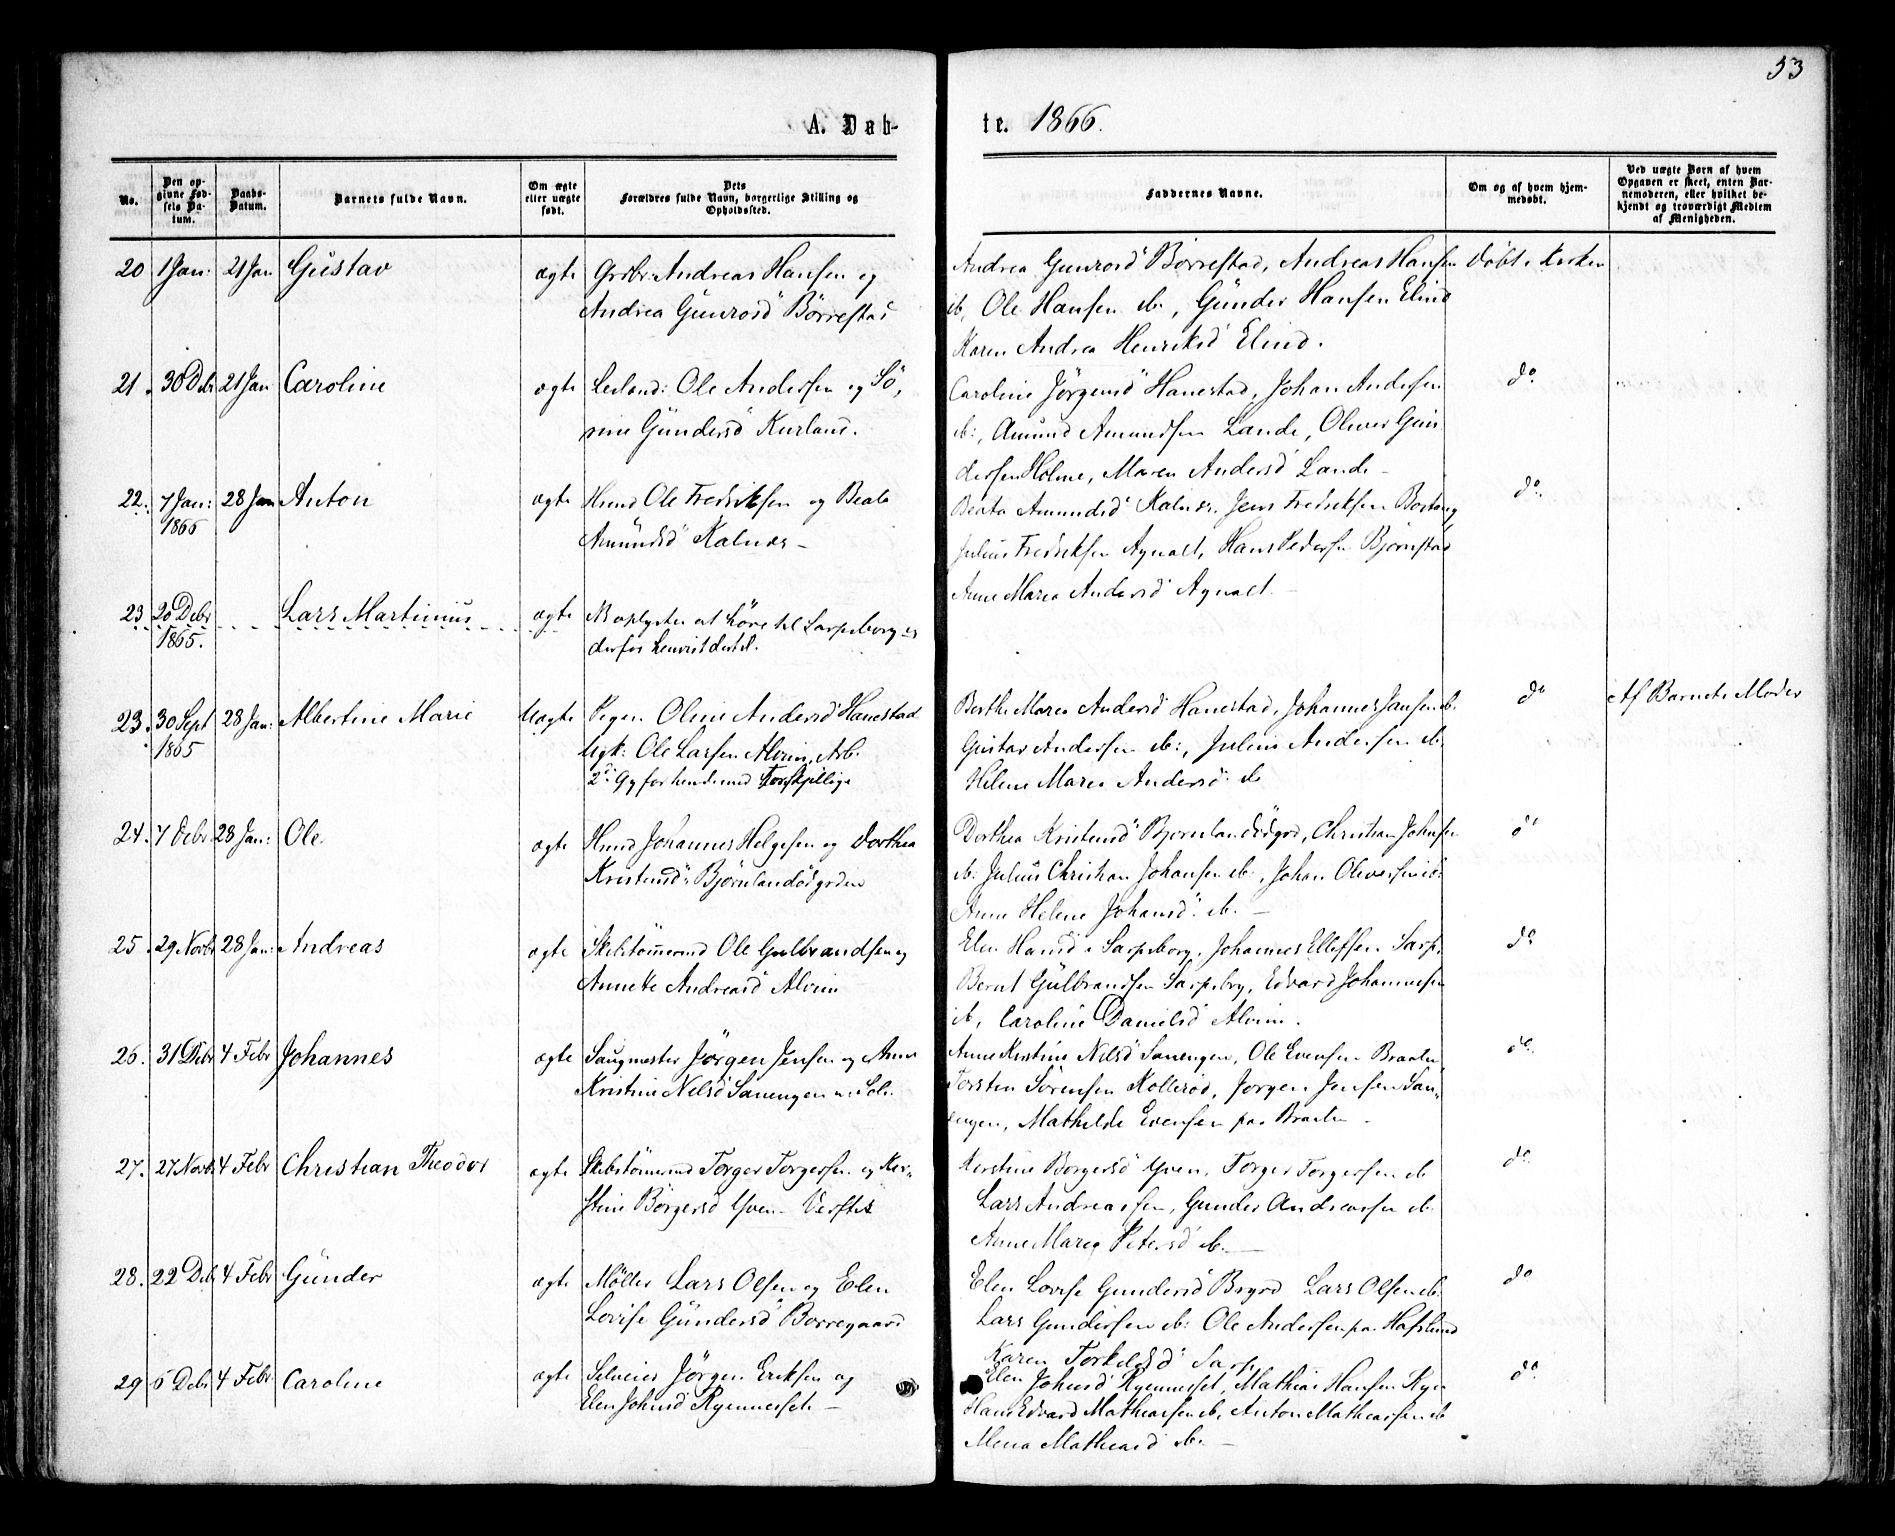 53
A. Døb-
te. 1866.
No.
Den op-
givne Fød-
sels Da-
tum.
Daabs-
Datum.
Barnets fulde Navn.
Om ægte
eller uægte
født.
Dets
Forældres fulde Navn, borgerlige Stilling og
Opholdssted.
Faddernes Navne.
Om og af hvem hjem-
medøbt.
Ved uægte Born af hvem
Opgaven er skeet, enten Bar-
nemoderen, eller hvilket be-
kjendt og troværdigt Medlem
af Menigheden.
20 1 Jan: 21 Jan Gustav ægte Grdbr: Andreas Hansen og
Andrea Gunrosd Børrestad
Andrea Gunrosd Børrestad, Andreas Hansen døbt i Kirken
ib, Ole Hansen ib:, Gunder Hansen Elind
Karen Andrea Henriksd Elind.
21. 30 Debr 21 Jan Caroline ægte Leilend: Ole Andersen og Sö,
rine Gundersd Kurland.
Caroline Jörgensd Hanestad, Johan Andersen do.
ib:, Amund Amundsen Lande, Oliver Gun
dersen Holme, Maren Andersd Lande -
22. 7 Jan: 28 Jan Anton ægte Hmd Ole Fredriksen og Beate
1866
Amundsd Kalnæs -
Beata Amundsd Kalnæs, Jens Fredriksen Bostang do.
Julius Fredriksen Agnalt, Hans Pedersen Bjørnstad
Anne Maria Andersd Agnalt. -
23 20 Debr Lars Martinius ægte NB oplystes at høre til Sarpsborg
1865.
derfor henvist dertil.
23. 30 Sept 28 Jan: Albertine Marie Uægte Pigen Oline Andersd Hanestad
1865
Ugk: Ole Larsen Alvim, Arb.
2d Gg for hende med forskjellige
Berthe Maria Andersd Hanestad, Johannes Jansen ib. do Af Barnets Moder
Gustav Andersen ib:, Julius Andersen ib.
Helene Maria Andersd: ib
24. 7 Debr 28 Jan: Ole ægte Hmd Johannes Helgesen og Dorthea
Kristensd: Bjørnlandødgrden
Dorthea Kristensd Bjornlandödgrd, Christian Johnsen do
ib: Julius Christian Johansen ib:, Johan Oliversen ib:
Anne Helene Johansd: ib. -
25. 29 Novbr 28 Jan: Andreas ægte Skibstömmermd Ole Gulbrandsen og
Annette Andreasd Alvim
Elen Hansd i Sarpsborg, Johannes Ellefsen Sarp, do
Bernt Gulbrandsen Sarpsbrg, Edvard Johannesen
ib, Caroline Danielsd Alvim.
26. 31 Debr 4 Febr Johannes ægte Saugmester Jörgen Jensen og Anne
Kristine Nilsd Sanengen
Anne Kirstine Nilsd Sanengen, Ole Evensen Braaten do.
Torsten Sörensen Kolleröd, Jorgen Jensen San-
engen, Mathilde Evensen paa Braaten.
27. 27 Novbr 4 Febr Christian Theodor ægte Skibstömmermd Torger Torgersen og Kir-
stine Börgersd Yven Verftet
Kirstine Borgersd Yven, Torger Torgersen ib do.
Lars Andreassen, Gunder Andreassen ib.
Anne Maria Petersd ib. -
28. 22 Debr 4 Febr Gunder ægte Møller Lars Olsen og Elen
Lovise Gundersd Borregaard
Elen Lovise Gundersd Brgrd Lars Olsen ib. do
Lars Gundersen ib: Ole Andersen paa Hafslund
Karen Torkelsd Sarp.
29 6 Debr 4 Febr. Caroline ægte Selveier Jörgen Eriksen og
Elen Johnsd Ryenneset -
Elen Johnsd Ryenneset, Mathias Hansen Ryen do.
Hans Edvard Mathiassen ib, Anton Mathiassen ib
Mina Mathiasd ib. -